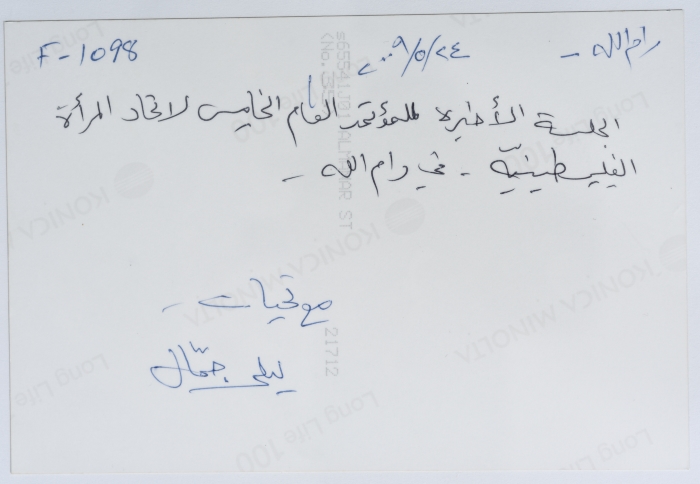 رام الله -
٢٠٠٩/٥/٢٤
F-1098
الجلسة الأخيرة للمؤتمر العام الخامس لاتحاد المرأة
الفلسطينية - في رام الله -
مع تحيات -
ليلى جمّال
KONICA MINOLTA
Long Life 100
21712